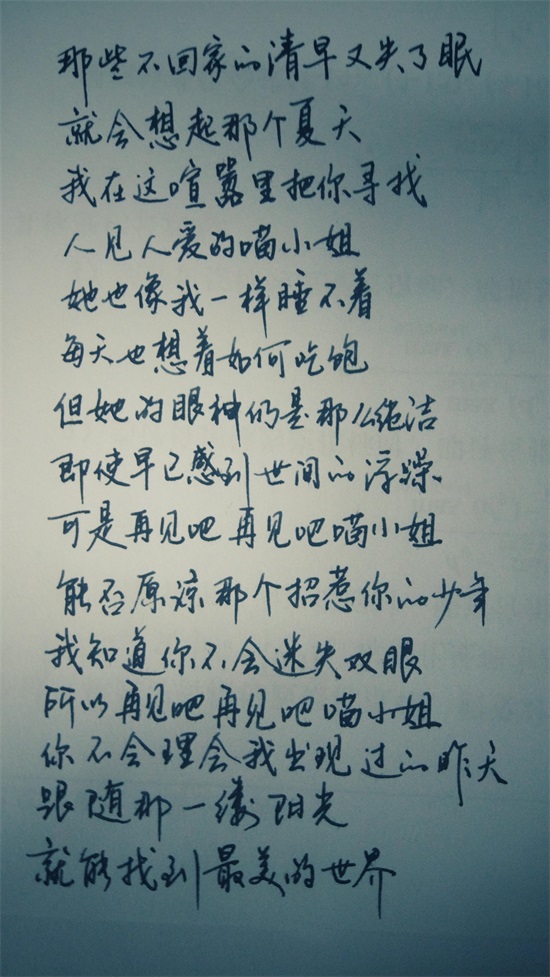 那些不回家的清早又失了眠
就会想起那个夏天
我在这喧嚣里把你寻找
人见人爱的喵小姐
她也像我一样睡不着
每天也想着如何吃饱
但她的眼神仍是那么绝洁
即使早已感到世间的浮躁
可是再见吧再见吧喵小姐
能否原谅那个招惹你的少年
我知道你不会迷失双眼
所以再见吧再见吧喵小姐
你不会理会我出现过的昨天
跟随那一缕阳光
就能找到最美的世界